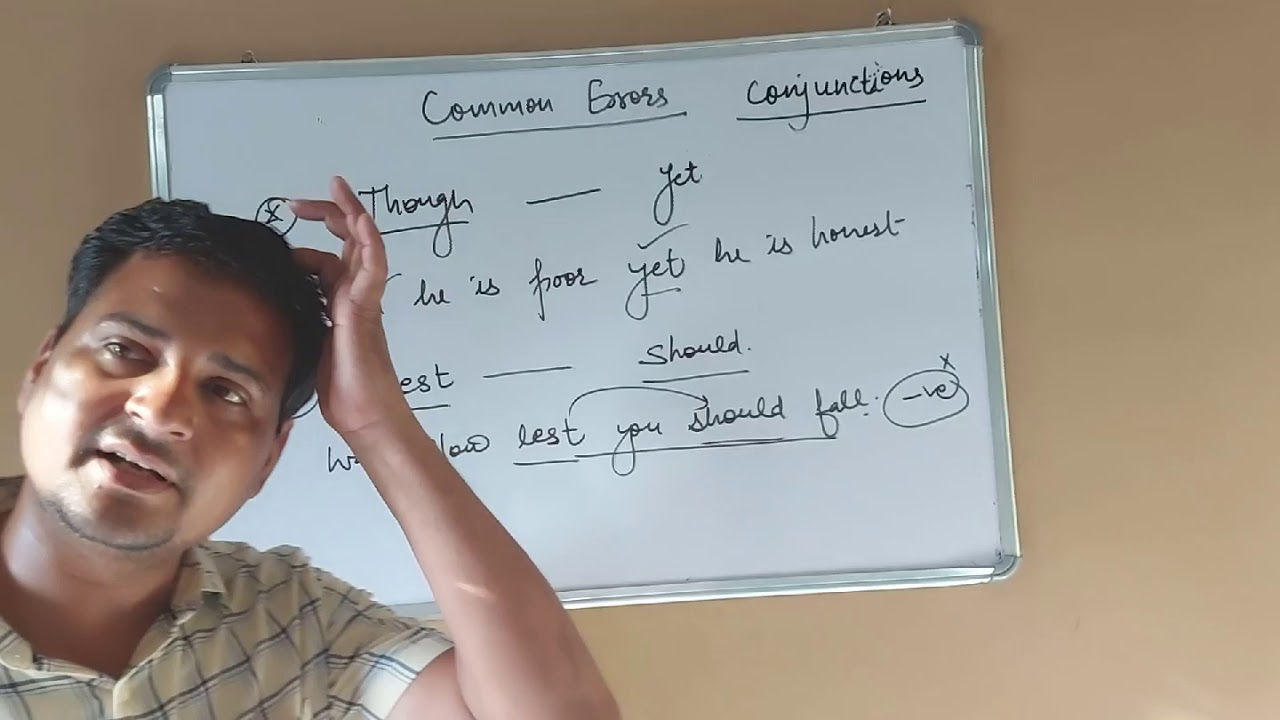 Common Errors Conjunctions
x Though — yet
he is poor yet he is honest
est — should.
lest you should fall. -ve x